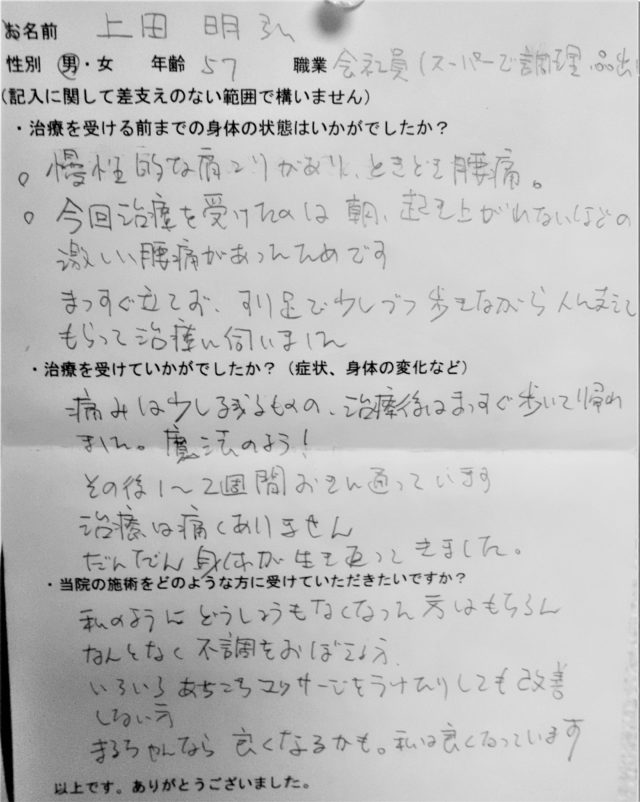 お名前 上田 明弘
性別 男・女 年齢 57 職業 会社員(スーパーで調理、品出し
(記入に関して差支えのない範囲で構いません)
・治療を受ける前までの身体の状態はいかがでしたか?
。慢性的な肩こりがあり、ときどき腰痛。
。今回治療を受けたのは朝、起き上がれないほどの
激しい腰痛があったためです
まっすぐ立てず、すり足で少しづつ歩きながら人に支えて
もらって治療に伺いました
・治療を受けていかがでしたか?(症状、身体の変化など)
痛みは少し残るものの、治療後はまっすぐ歩いて帰れ
ました。魔法のよう!
その後1~2週間おきに通っています
治療は痛くありません
だんだん身体が生き返ってきました。
・当院の施術をどのような方に受けていただきたいですか?
私のようにどうしようもなくなった方はもちろん
なんとなく不調をおぼえる方、
いろいろあちこちマッサージをうけたりしても改善
しない方
まるちゃんなら良くなるかも。私は良くなっています
以上です。ありがとうございました。